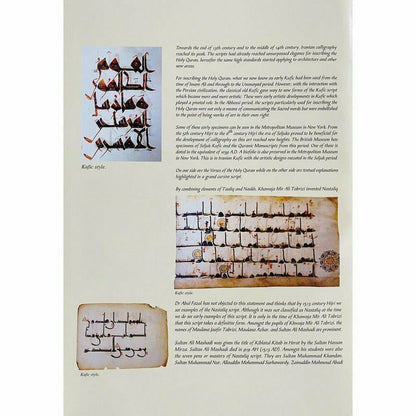 Towards the end of 13th century and to the middle of 14th century, Iranian calligraphy
reached its peak. The scripts had already reached unsurpassed elegance for inscribing the
Holy Quran, hereafter the same high standards started applying to architecture and other
new areas.
For inscribing the Holy Quran, what we now know as early Kufic had been used from the
time of Imam Ali and through to the Ummayad period. However, with the interaction with
the Persian civilization, the classical old Kufic gave way to new forms of the Kufic script
which became more and more artistic. These were early artistic developments in Kufic which
played a pivotal role. In the Abbassi period, the scripts particularly used for inscribing the
Holy Quran were not only a means of communicating the Sacred words but were embellished
to the point of being works of art in their own right.
Some of these early specimens can be seen in the Metropolitan Museum in New York. From
the 5th century Hijri to the 8th century Hijri the era of Seljuks proved to be beneficial for
the development of calligraphy as this art reached new heights. The British Museum has
specimens of Kufic and the Quranic Manuscripts from this period. One of these is
dated to the equivalent of 1036 A.D. A biofolio is also preserved in the Metropolitan Museum
in New York. This is in Iranian Kufic with the artistic designs executed in the Seljuk period
On one side are the Verses of the Holy Quran while on the other side are textual explanations
highlighted in a grand cursive script.
By combining elements of Taaliq and Naskh, Khawaja Mir Ali Tabrizi invented Nastaliq
Kufic style.
Kufic style.
Dr Abul Fazal has objected to this statement and thinks that by 1513 century Hijri we
see examples of the Nastaliq script. Although it was not classified as Nastaliq at the time
we do see early examples of this script. It is only in the time of Khawaja Mir Ali Tabrizi
that this script takes a definitive form. Amongst the pupils of Khwaja Mir Ali Tabrizi, the
names of Maulana Jaafer Tabrizi, Maulana Azhar, and Sultan Ali Mashadi are prominent.
Sultan Ali Mashadi was given the title of Kiblatul Kitab in Herat by the Sultan Hassan
Mirza. Sultan Ali Mashadi died in 919 AH (1513 AD). Amongst his students were also
the seven pens or masters of Nastaliq script. They are Sultan Muhammad Khandan,
Sultan Muhammad Nur, Allaudin Mohammad Sarhawardy, Zainuddin Mahmud Abadi
Kufic style.